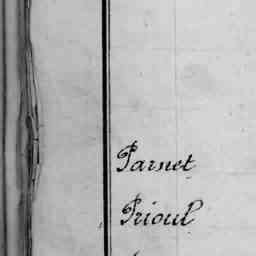 Parnet
Prioul